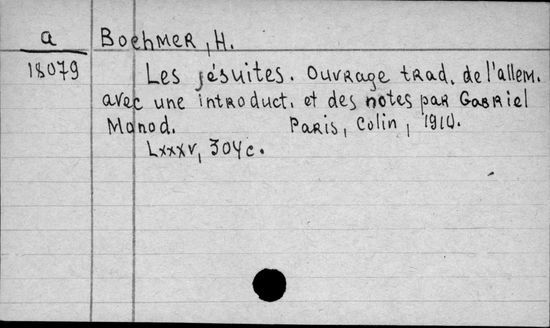 a Boehmer, H.
18079 Les jésuites. Ouvrage trad. de l'allem.
avec une introduct. et des notes par Gabriel
Monod. Paris, Colin, 1910.
Lxxxv, 304 c.